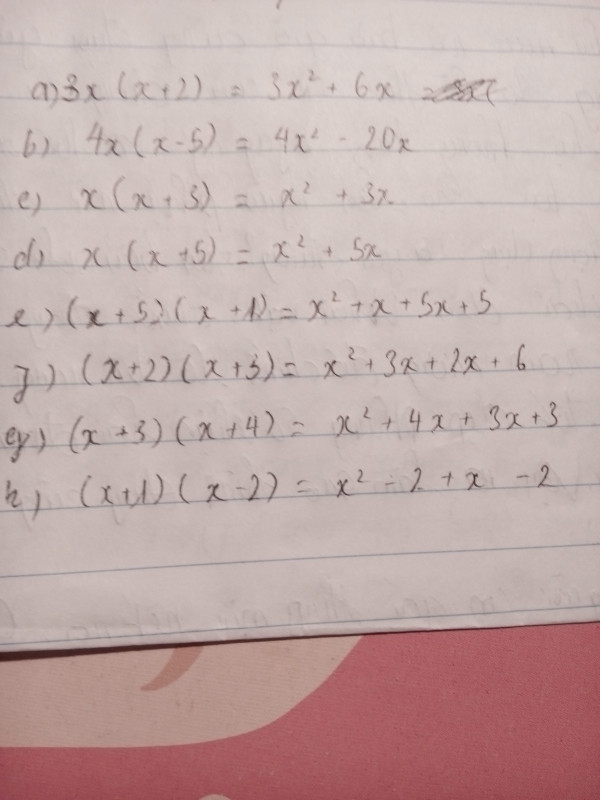 a) 3x (x+2) = 3x² + 6x =
b) 4x (x-5) = 4x² - 20x
c) x (x + 3) = x² + 3x
d) x (x +5) = x² + 5x
e) (x + 5) (x +1) = x² + x + 5x + 5
f) (x+2) (x+3) = x² + 3x + 2x + 6
g) (x +3) (x+4) = x² + 4x + 3x + 3
h) (x+1) (x-2) = x² - 2 + x - 2